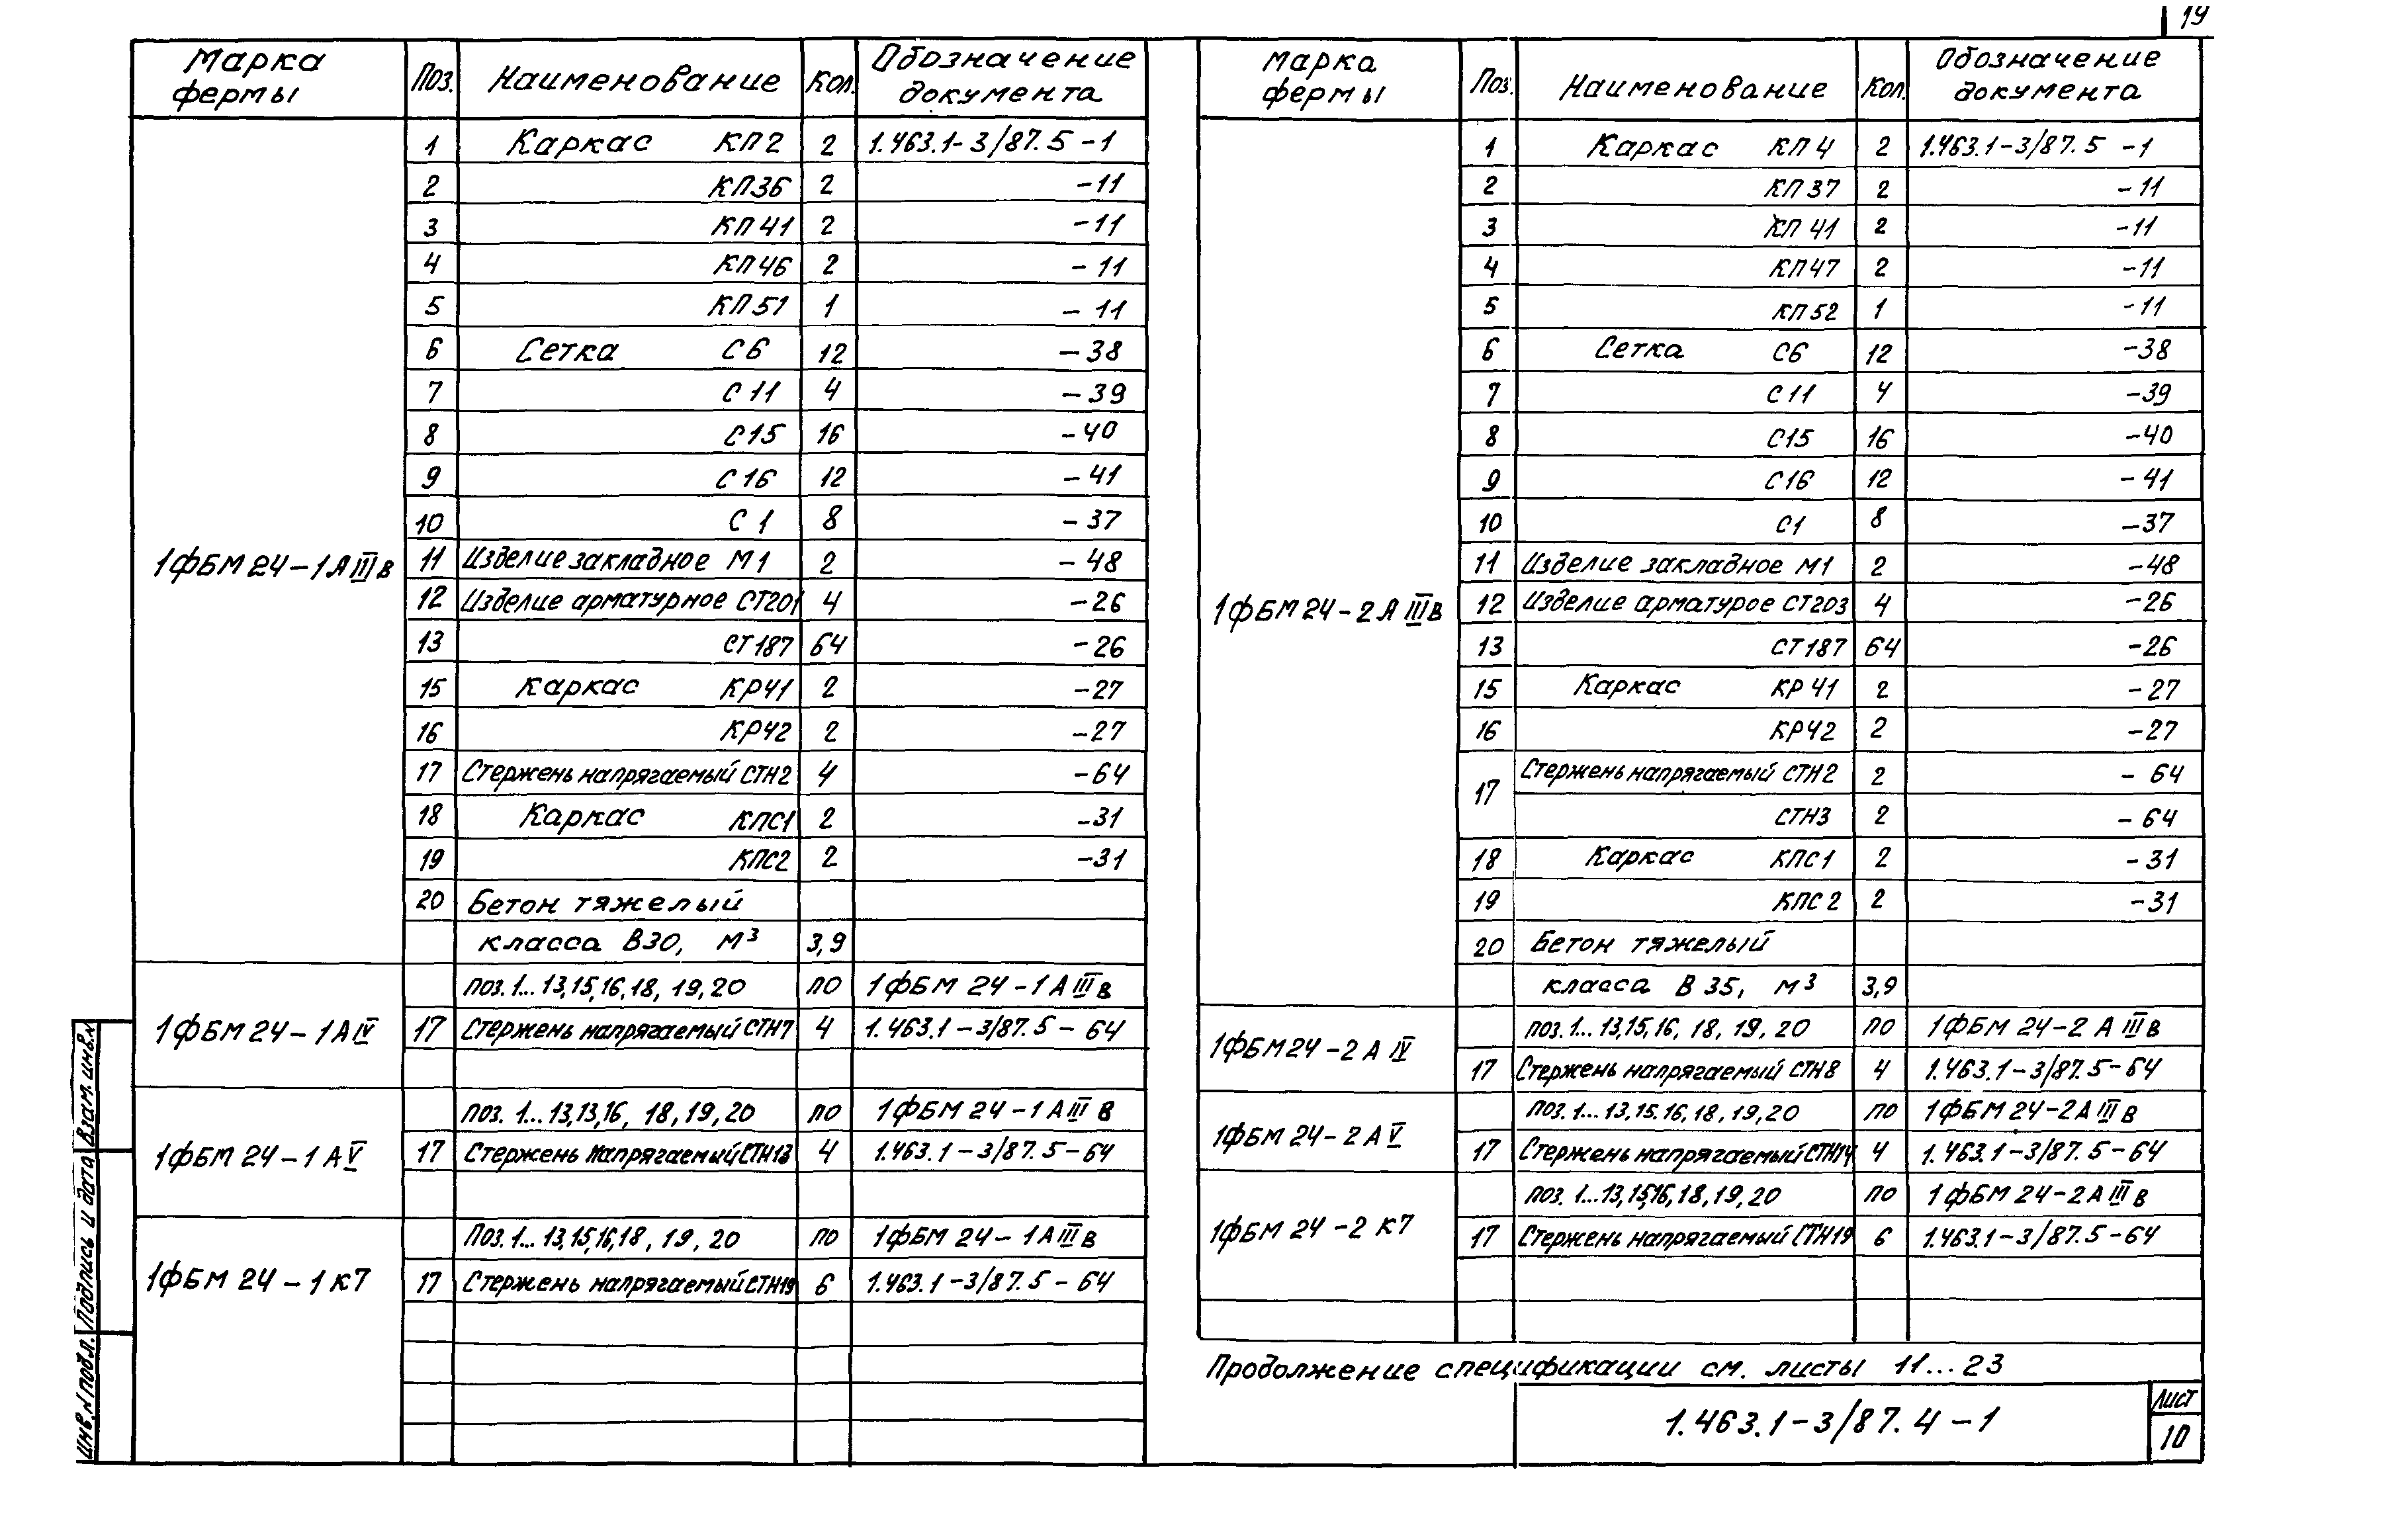 14
Марка фермы Поз. Наименование Кол. Обозначение документа
1 Каркас КП2 2 1.463.1-3/87.5 -1
2 КП36 2 -11
3 КП41 2 -11
4 КП46 2 -11
5 КП51 1 -11
6 Сетка С6 12 -38
7 С11 4 -39
8 С15 16 -40
9 С16 12 -41
10 С1 8 -37
1ФБМ24-1АIIIв 11 Изделие закладное М1 2 -48
12 Изделие арматурное СТ201 4 -26
13 СТ187 64 -26
15 Каркас КР41 2 -27
16 КР42 2 -27
17 Стержень напрягаемый СТН2 4 -64
18 Каркас КПС1 2 -31
19 КПС2 2 -31
20 Бетон тяжелый
класса В30, м³ 3,9
поз. 1... 13,15,16,18, 19,20 по 1ФБМ 24-1АIIIв
1ФБМ24-1АIV 17 Стержень напрягаемый СТН7 4 1.463.1-3/87.5-64
поз. 1... 13,13,16, 18,19,20 по 1ФБМ 24-1АIIIв
1ФБМ 24-1АV 17 Стержень напрягаемый СТН13 4 1.463.1-3/87.5-64
Поз. 1... 13,15,16,18, 19, 20 по 1ФБМ 24-1АIIIв
1ФБМ 24-1К7 17 Стержень напрягаемый СТН19 6 1.463.1-3/87.5-64
Марка фермы Поз. Наименование Кол. Обозначение документа
1 Каркас КП4 2 1.463.1-3/87.5 -1
2 КП37 2 -11
3 КП41 2 -11
4 КП47 2 -11
5 КП52 1 -11
6 Сетка С6 12 -38
7 С11 4 -39
8 С15 16 -40
9 С16 12 -41
10 С1 8 -37
11 Изделие закладное М1 2 -48
1ФБМ24-2АIIIв 12 Изделие арматурое СТ203 4 -26
13 СТ187 64 -26
15 Каркас КР41 2 -27
16 КР42 2 -27
17 Стержень напрягаемый СТН2 2 -64
СТН3 2 -64
18 Каркас КПС1 2 -31
19 КПС2 2 -31
20 Бетон тяжелый
класса В35, м³ 3,9
поз. 1... 13,15,16, 18, 19, 20 по 1ФБМ 24-2АIIIв
1ФБМ24-2АIV 17 Стержень напрягаемый СТН8 4 1.463.1-3/87.5-64
поз. 1... 13,15.16,18,19,20 по 1ФБМ 24-2АIIIв
1ФБМ 24-2АV 17 Стержень напрягаемый СТН14 4 1.463.1-3/87.5-64
поз. 1...13,15,16,18,19,20 по 1ФБМ 24-2АIIIв
1ФБМ 24-2К7 17 Стержень напрягаемый СТН19 6 1.463.1-3/87.5-64
Продолжение спецификации см. листы 11...23
1.463.1-3/87.4-1
Лист
10
Инв.N подл. Подпись и дата Взам. инв.N